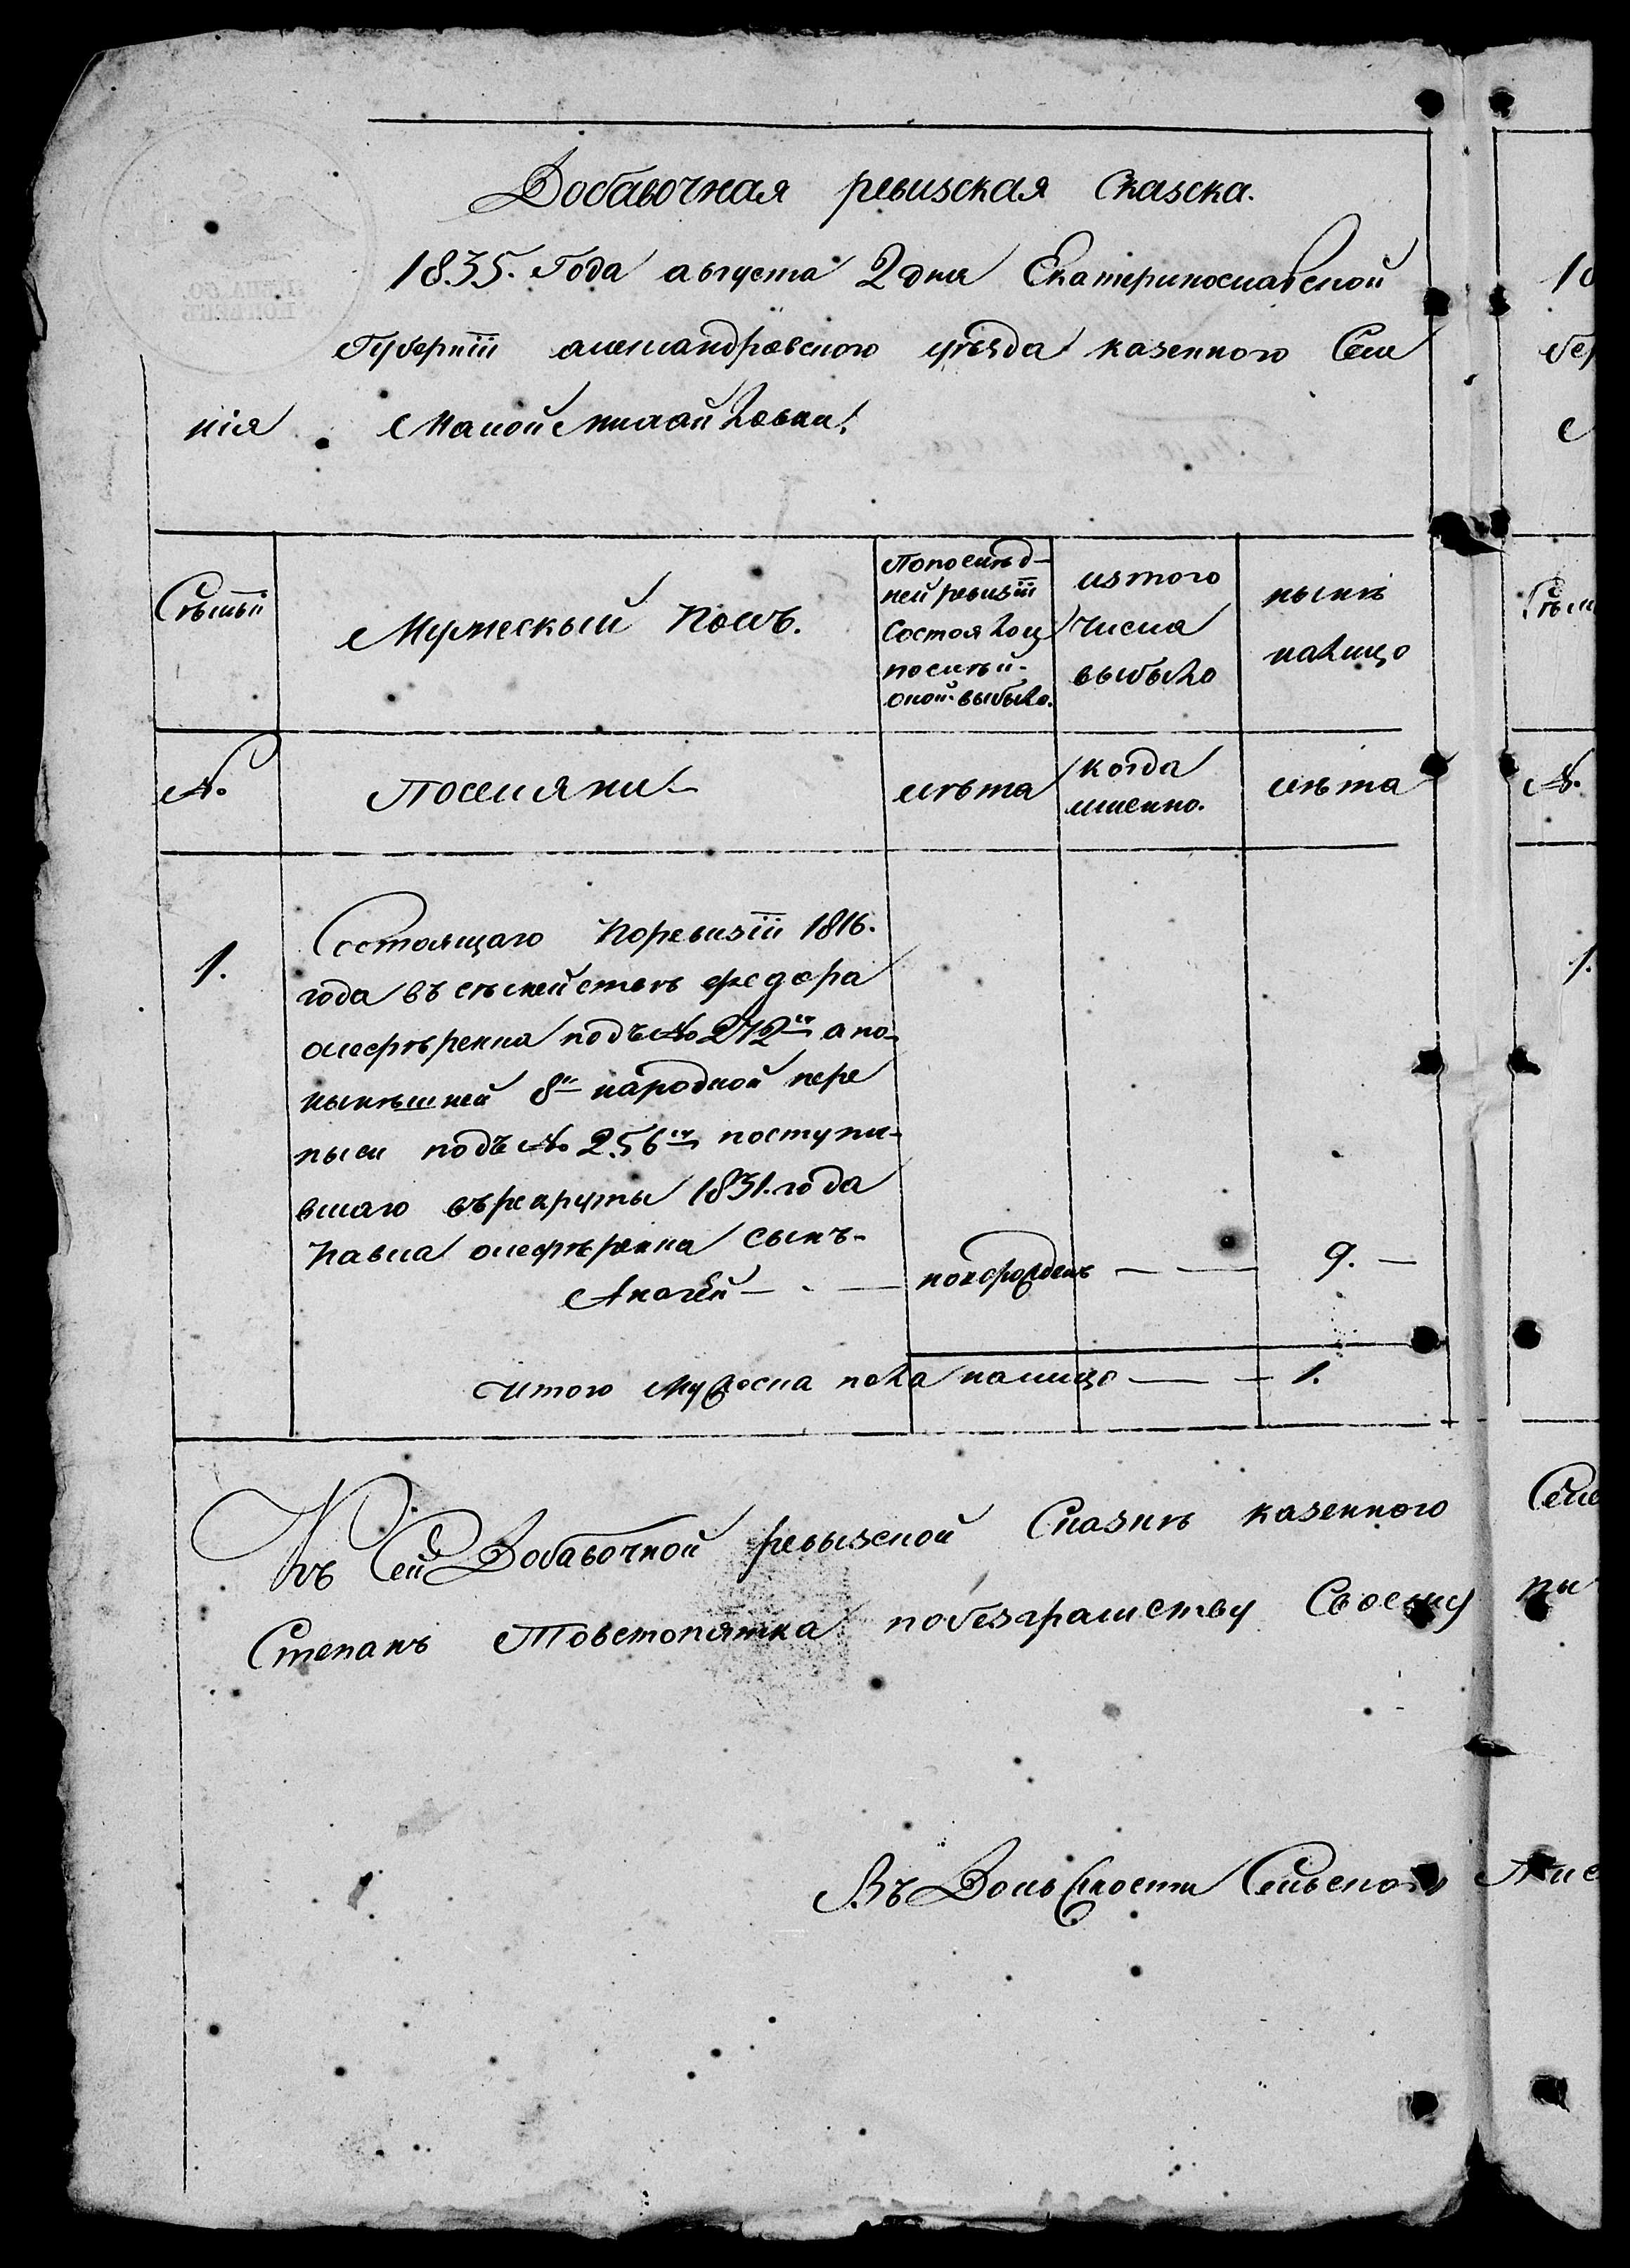 Добавочная ревизская Сказска.
1835. Года августа 2 дня Екатеринославской
Губернїи александровского уѣзда казенного Селе
нія Малой Михайловки.
Сѣмьи
Мужескый Полъ.
Попослѣд-
ней ревизїи
Состояло и
послѣ
оной выбыло.
изтого
Числа
выбыло
нынѣ
налицо
№.
Поселяни
лѣта
когда
именно.
лѣта
1.
Состоящаго поревизїи 1816.
года въ сѣмействѣ федора
олефѣренка подъ № 272м а по-
нынѣшней 8й народной пере
пыси подъ № 256м поступи-
вшаго въ рекруты 1831. года
Павла олефѣренка сынъ.
новорожденъ 9.
Итого мужеска пола налицо 1.
Къ Сей Добавочной ревызской Сказкѣ казенного Селе
Степанъ Товстопятка побезграмству Своему
Въ Должности Сельского Писа
10
№.
1.